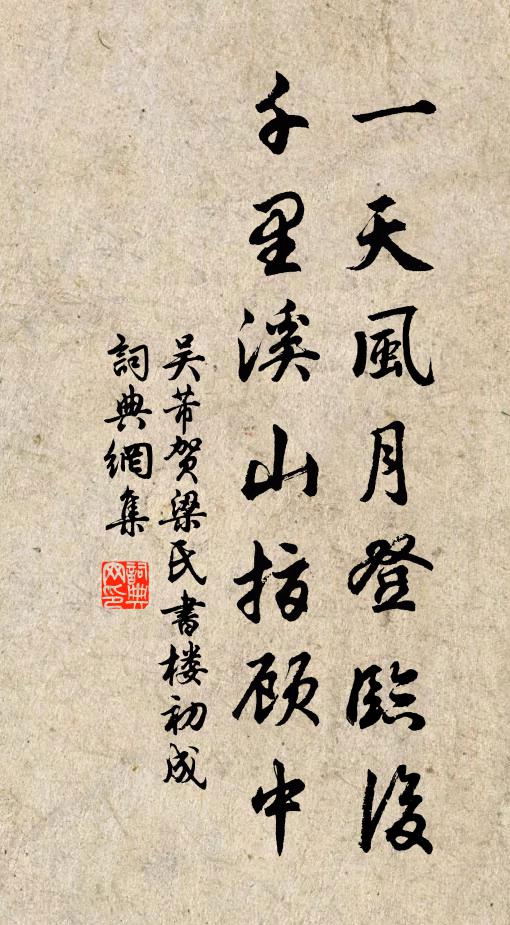 一天風月登臨後
千里溪山指顾中
吴芾贺梁氏書楼初成
詞典網集
詞典
网印